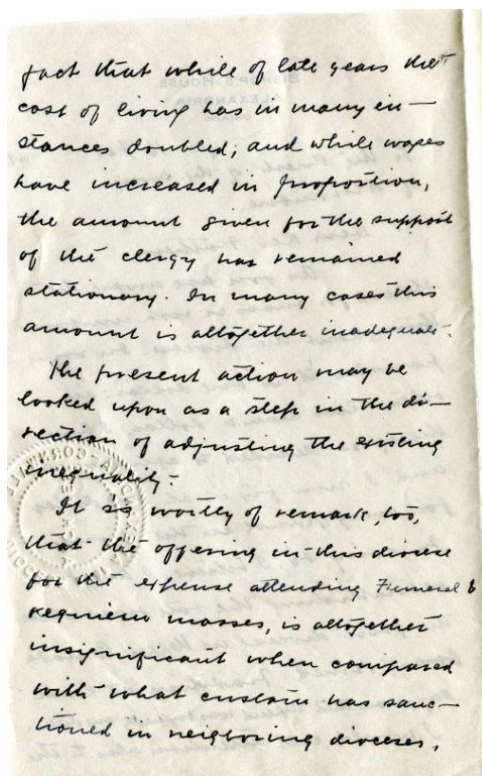 fact that while of late years the
cost of living has in many in-
stances doubled; and while wages
have increased in proportion,
the amount given for the support
of the clergy has remained
stationary. In many cases this
amount is altogether inadequate.
The present action may be
looked upon as a step in the di-
rection of adjusting the existing
inequality.
It is worthy of remark, too,
that the offering in this diocese
for the expense attending Funeral &
requiem masses, is altogether
insignificant when compared
with what custom has sanc-
tioned in neighboring dioceses.